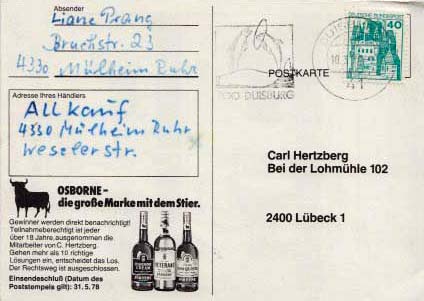 Absender
Liane Prang
Bruchstr. 23
4330 Mülheim Ruhr
Adresse Ihres Händlers
Allkauf
4330 Mülheim Ruhr
Weselerstr.
OSBORNE –
die große Marke mit dem Stier.
Gewinner werden direkt benachrichtigt!
Teilnahmeberechtigt ist jeder
über 18 Jahre, ausgenommen die
Mitarbeiter von C. Hertzberg.
Gehen mehr als 10 richtige
Lösungen ein, entscheidet das Los.
Der Rechtsweg ist ausgeschlossen.
Einsendeschluß (Datum des
Poststempels gilt): 31.5.78
DEUTSCHE BUNDESPOST
40
POSTKARTE
DUISBURG
Carl Hertzberg
Bei der Lohmühle 102
2400 Lübeck 1